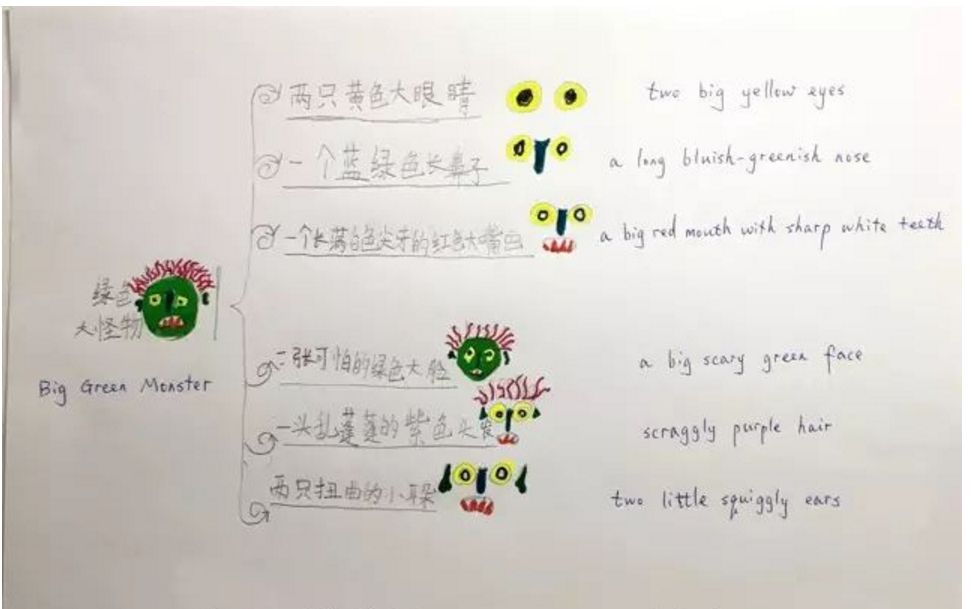 两只黄色大眼睛
two big yellow eyes
一个蓝绿色长鼻子
a long bluish-greenish nose
一个长满白色尖牙的红色大嘴巴
a big red mouth with sharp white teeth
绿色
大怪物
Big Green Monster
一张可怕的绿色大脸
a big scary green face
一头乱蓬蓬的紫色头发
scraggly purple hair
两只扭曲的小耳朵
two little squiggly ears